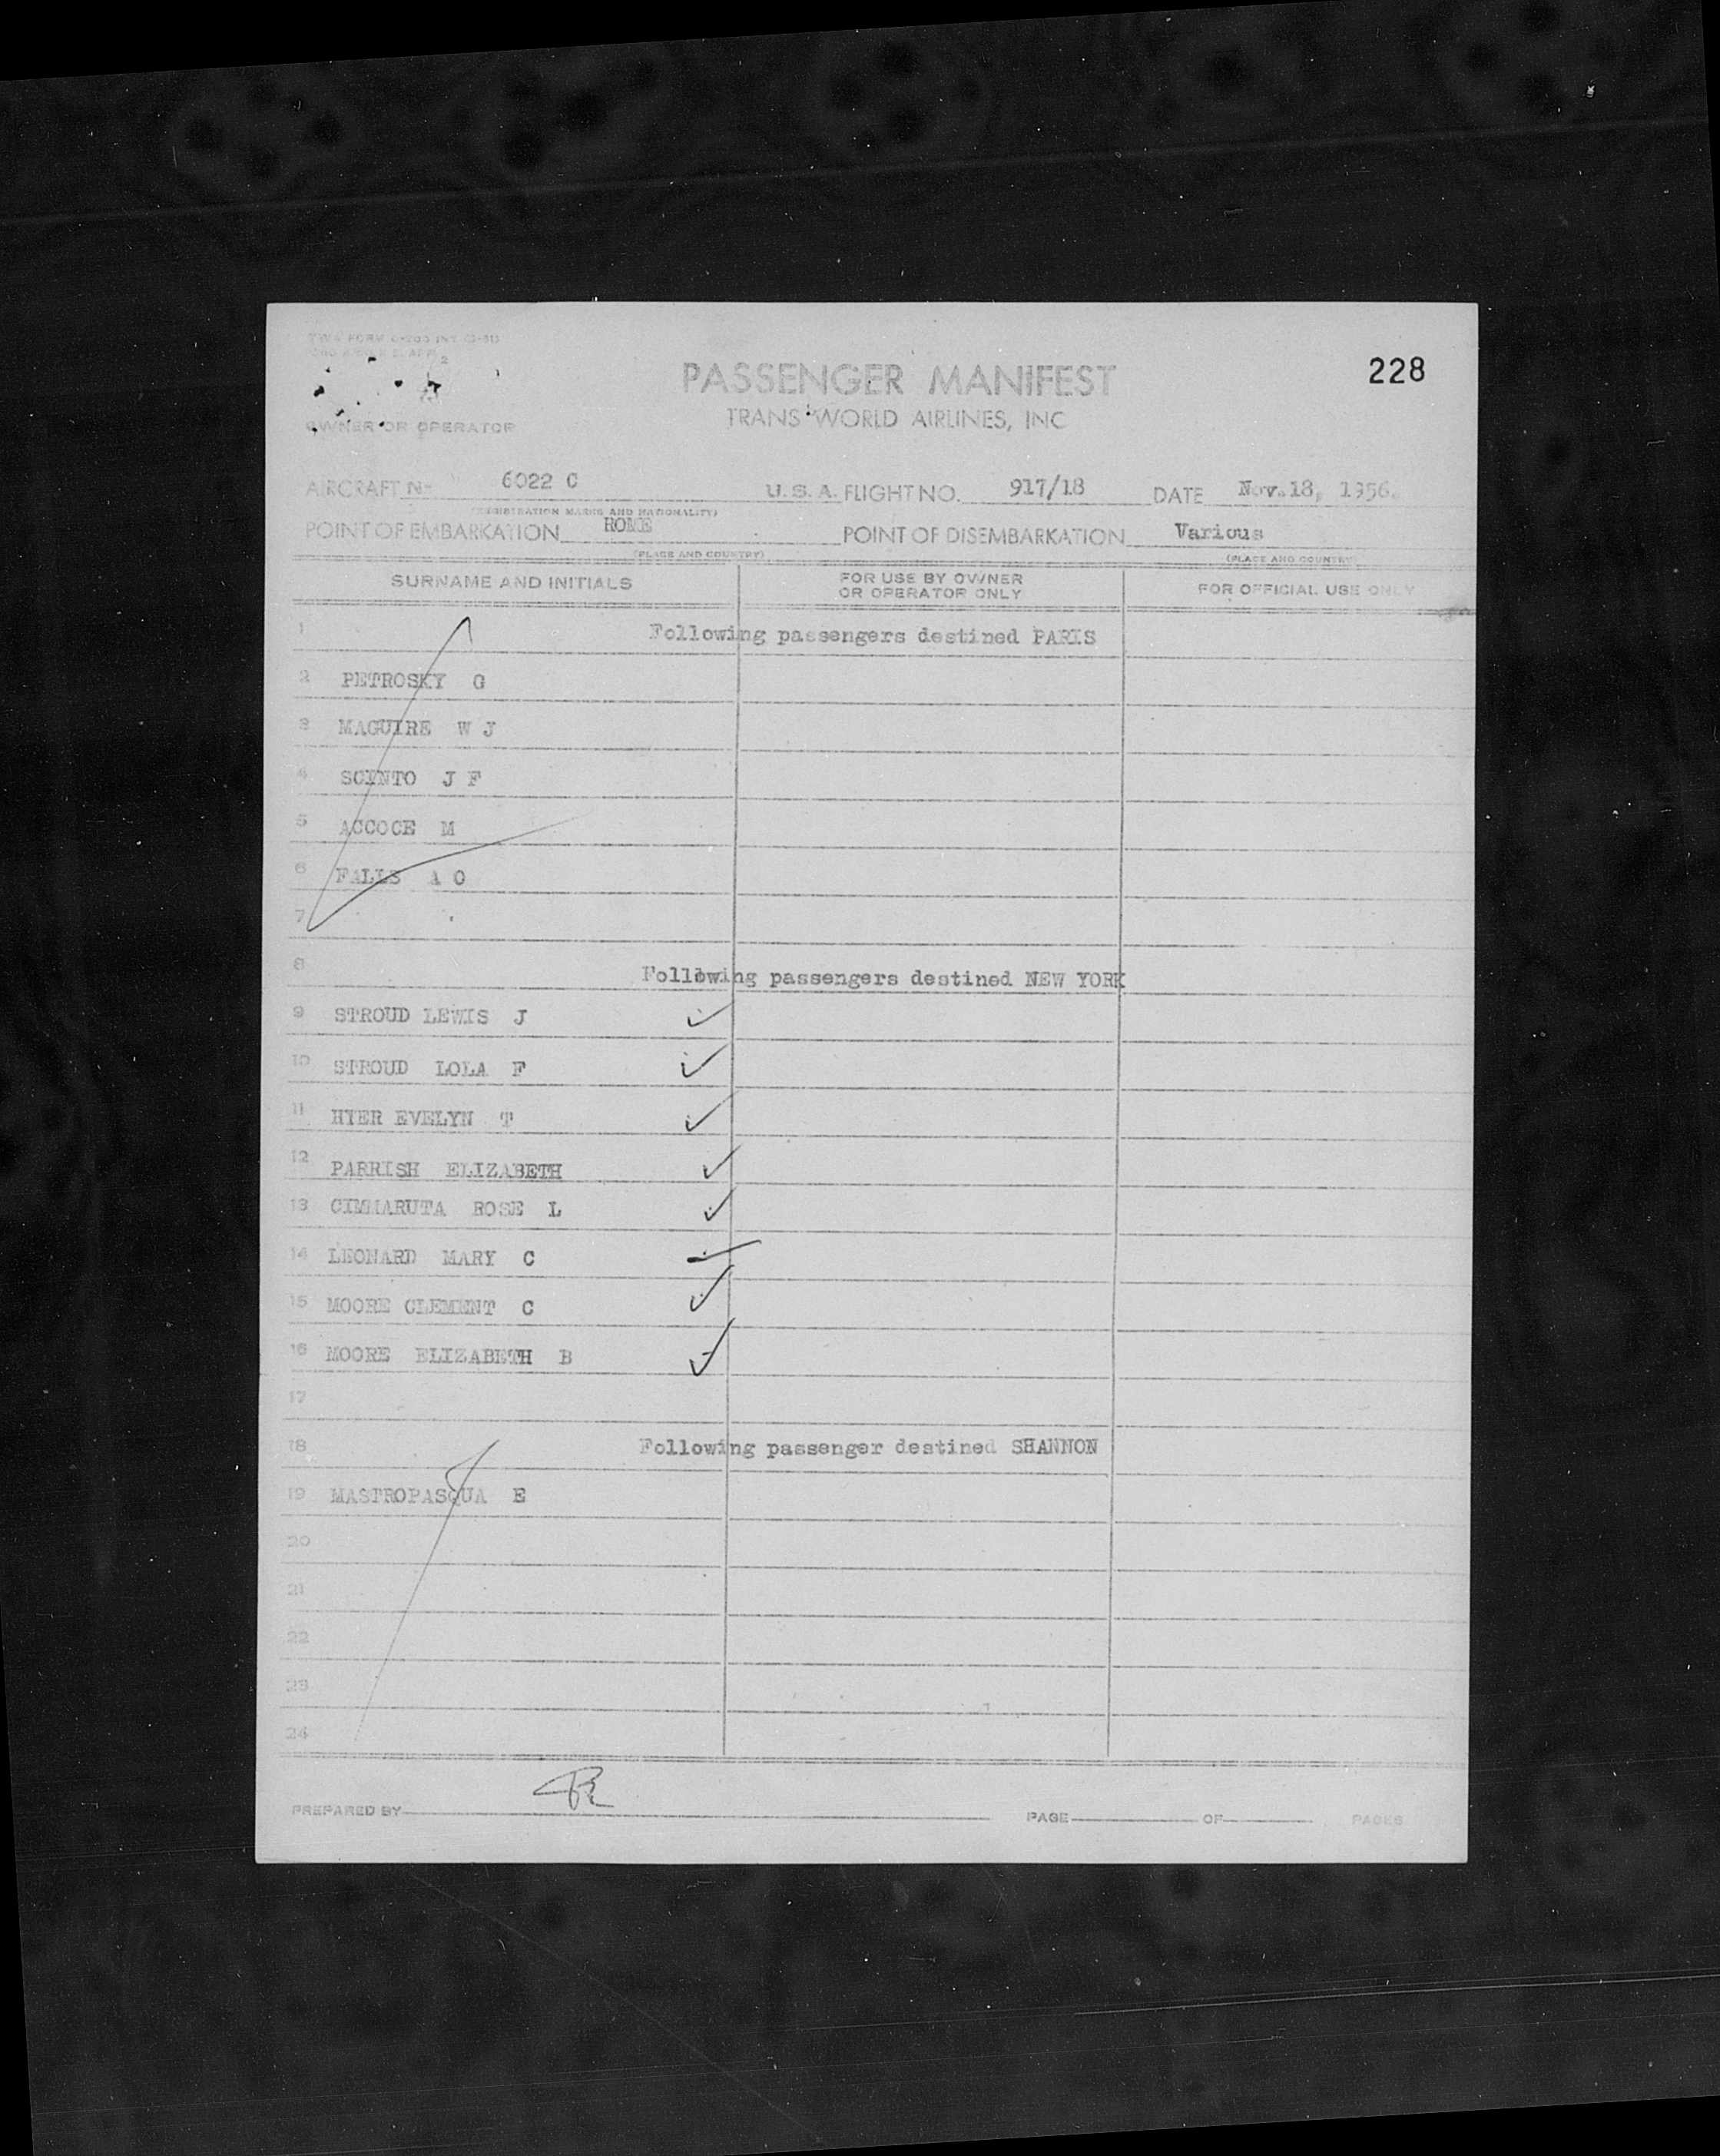 228
PASSENGER MANIFEST
TRANS WORLD AIRLINES, INC
OWNER OR OPERATOR
AIRCRAFT N- 6022 C U. S. A. FLIGHT NO. 917/18 DATE Nov.18, 1956.
(REGISTRATION MARKS AND NATIONALITY)
POINT OF EMBARKATION ROME POINT OF DISEMBARKATION Various
(PLACE AND COUNTRY) (PLACE AND COUNTRY)
SURNAME AND INITIALS FOR USE BY OWNER OR OPERATOR ONLY FOR OFFICIAL USE ONLY
1 Following passengers destined PARIS
2 PETROSKY G
3 MAGUIRE W J
4 SCINTO J F
5 ACCOCE M
6 FALLS A O
7
8 Following passengers destined NEW YORK
9 STROUD LEWIS J
10 STROUD LOLA F
11 HYER EVELYN T
12 PARRISH ELIZABETH
13 CIMMARUTA ROSE L
14 LEONARD MARY C
15 MOORE CLEMENT C
16 MOORE ELIZABETH B
17
18 Following passenger destined SHANNON
19 MASTROPASQUA E
20
21
22
23
24
PREPARED BY PAGE OF PAGES